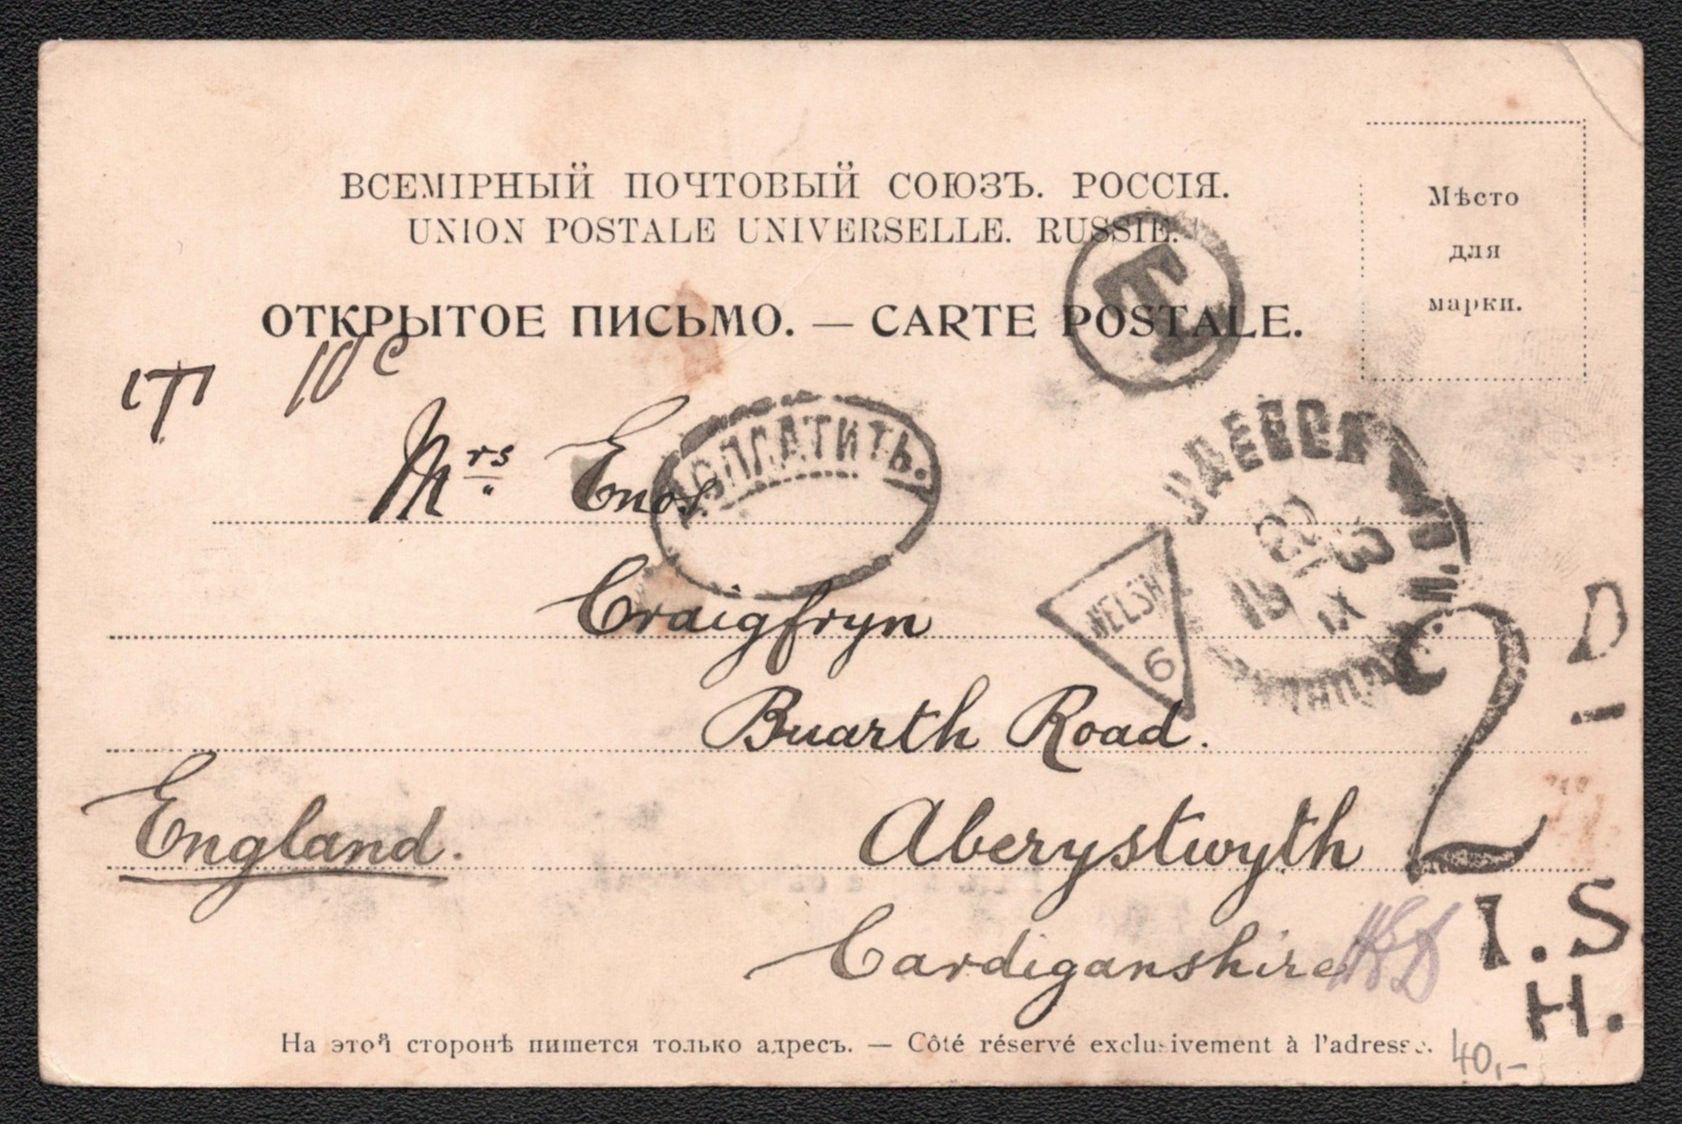 ВСЕМІРНЫЙ ПОЧТОВЫЙ СОЮЗЪ. РОССІЯ.
UNION POSTALE UNIVERSELLE. RUSSIE.
ОТКРЫТОЕ ПИСЬМО. — CARTE POSTALE.
Мѣсто
для
марки.
T
T 10 c
ДОПЛАТИТЬ.
Mrs Enos
Craigfryn
Buarth Road.
Aberystwyth
England.
Cardiganshire
6
2 D
I.S.
H.
На этой сторонѣ пишется только адресъ. — Côté réservé exclusivement à l'adresse.
40,-